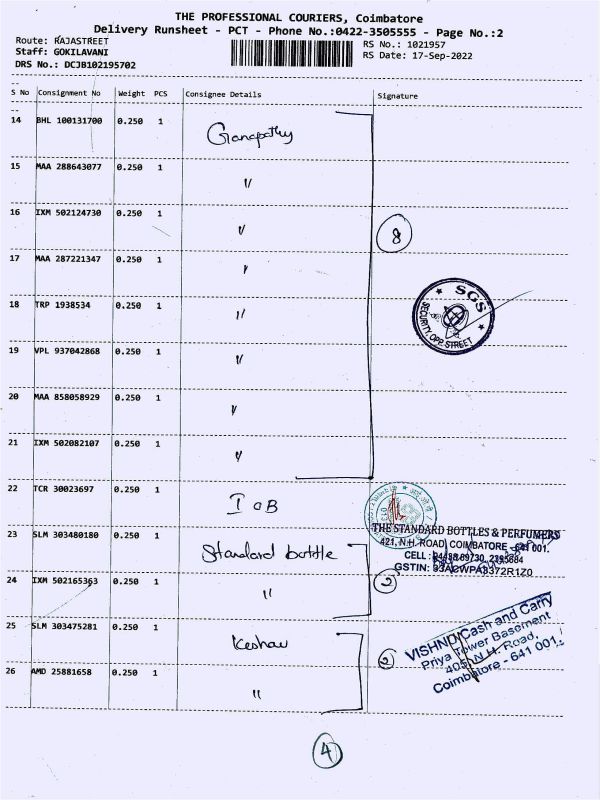 THE PROFESSIONAL COURIERS, Coimbatore
Delivery Runsheet - PCT - Phone No.:0422-3505555 - Page No.:2
Route: RAJASTREET
RS No.: 1021957
Staff: GOKILAVANI
RS Date: 17-Sep-2022
DRS No.: DCJB102195702
S No Consignment No Weight PCS Consignee Details Signature
14 BHL 100131700 0.250 1 Ganapathy
15 MAA 288643077 0.250 1 〃
16 IXM 502124730 0.250 1 〃
8
17 MAA 287221347 0.250 1 〃
18 TRP 1938534 0.250 1 〃
SGS
SECURITY, OPP. STREET
19 VPL 937042868 0.250 1 〃
20 MAA 858058929 0.250 1 〃
21 IXM 502082107 0.250 1 〃
22 TCR 30023697 0.250 1 IOB
THE STANDARD BOTTLES & PERFUMERS
23 SLM 303480180 0.250 1 Standard bottle
421, N.H. ROAD, COIMBATORE - 641 001.
CELL :
GSTIN:
24 IXM 502165363 0.250 1 〃
2
25 SLM 303475281 0.250 1 Keshav
2
VISHNU Cash and Carry
Priya Tower Basement
405, N.H. Road,
Coimbatore - 641 001.
26 AMD 25881658 0.250 1 〃
4